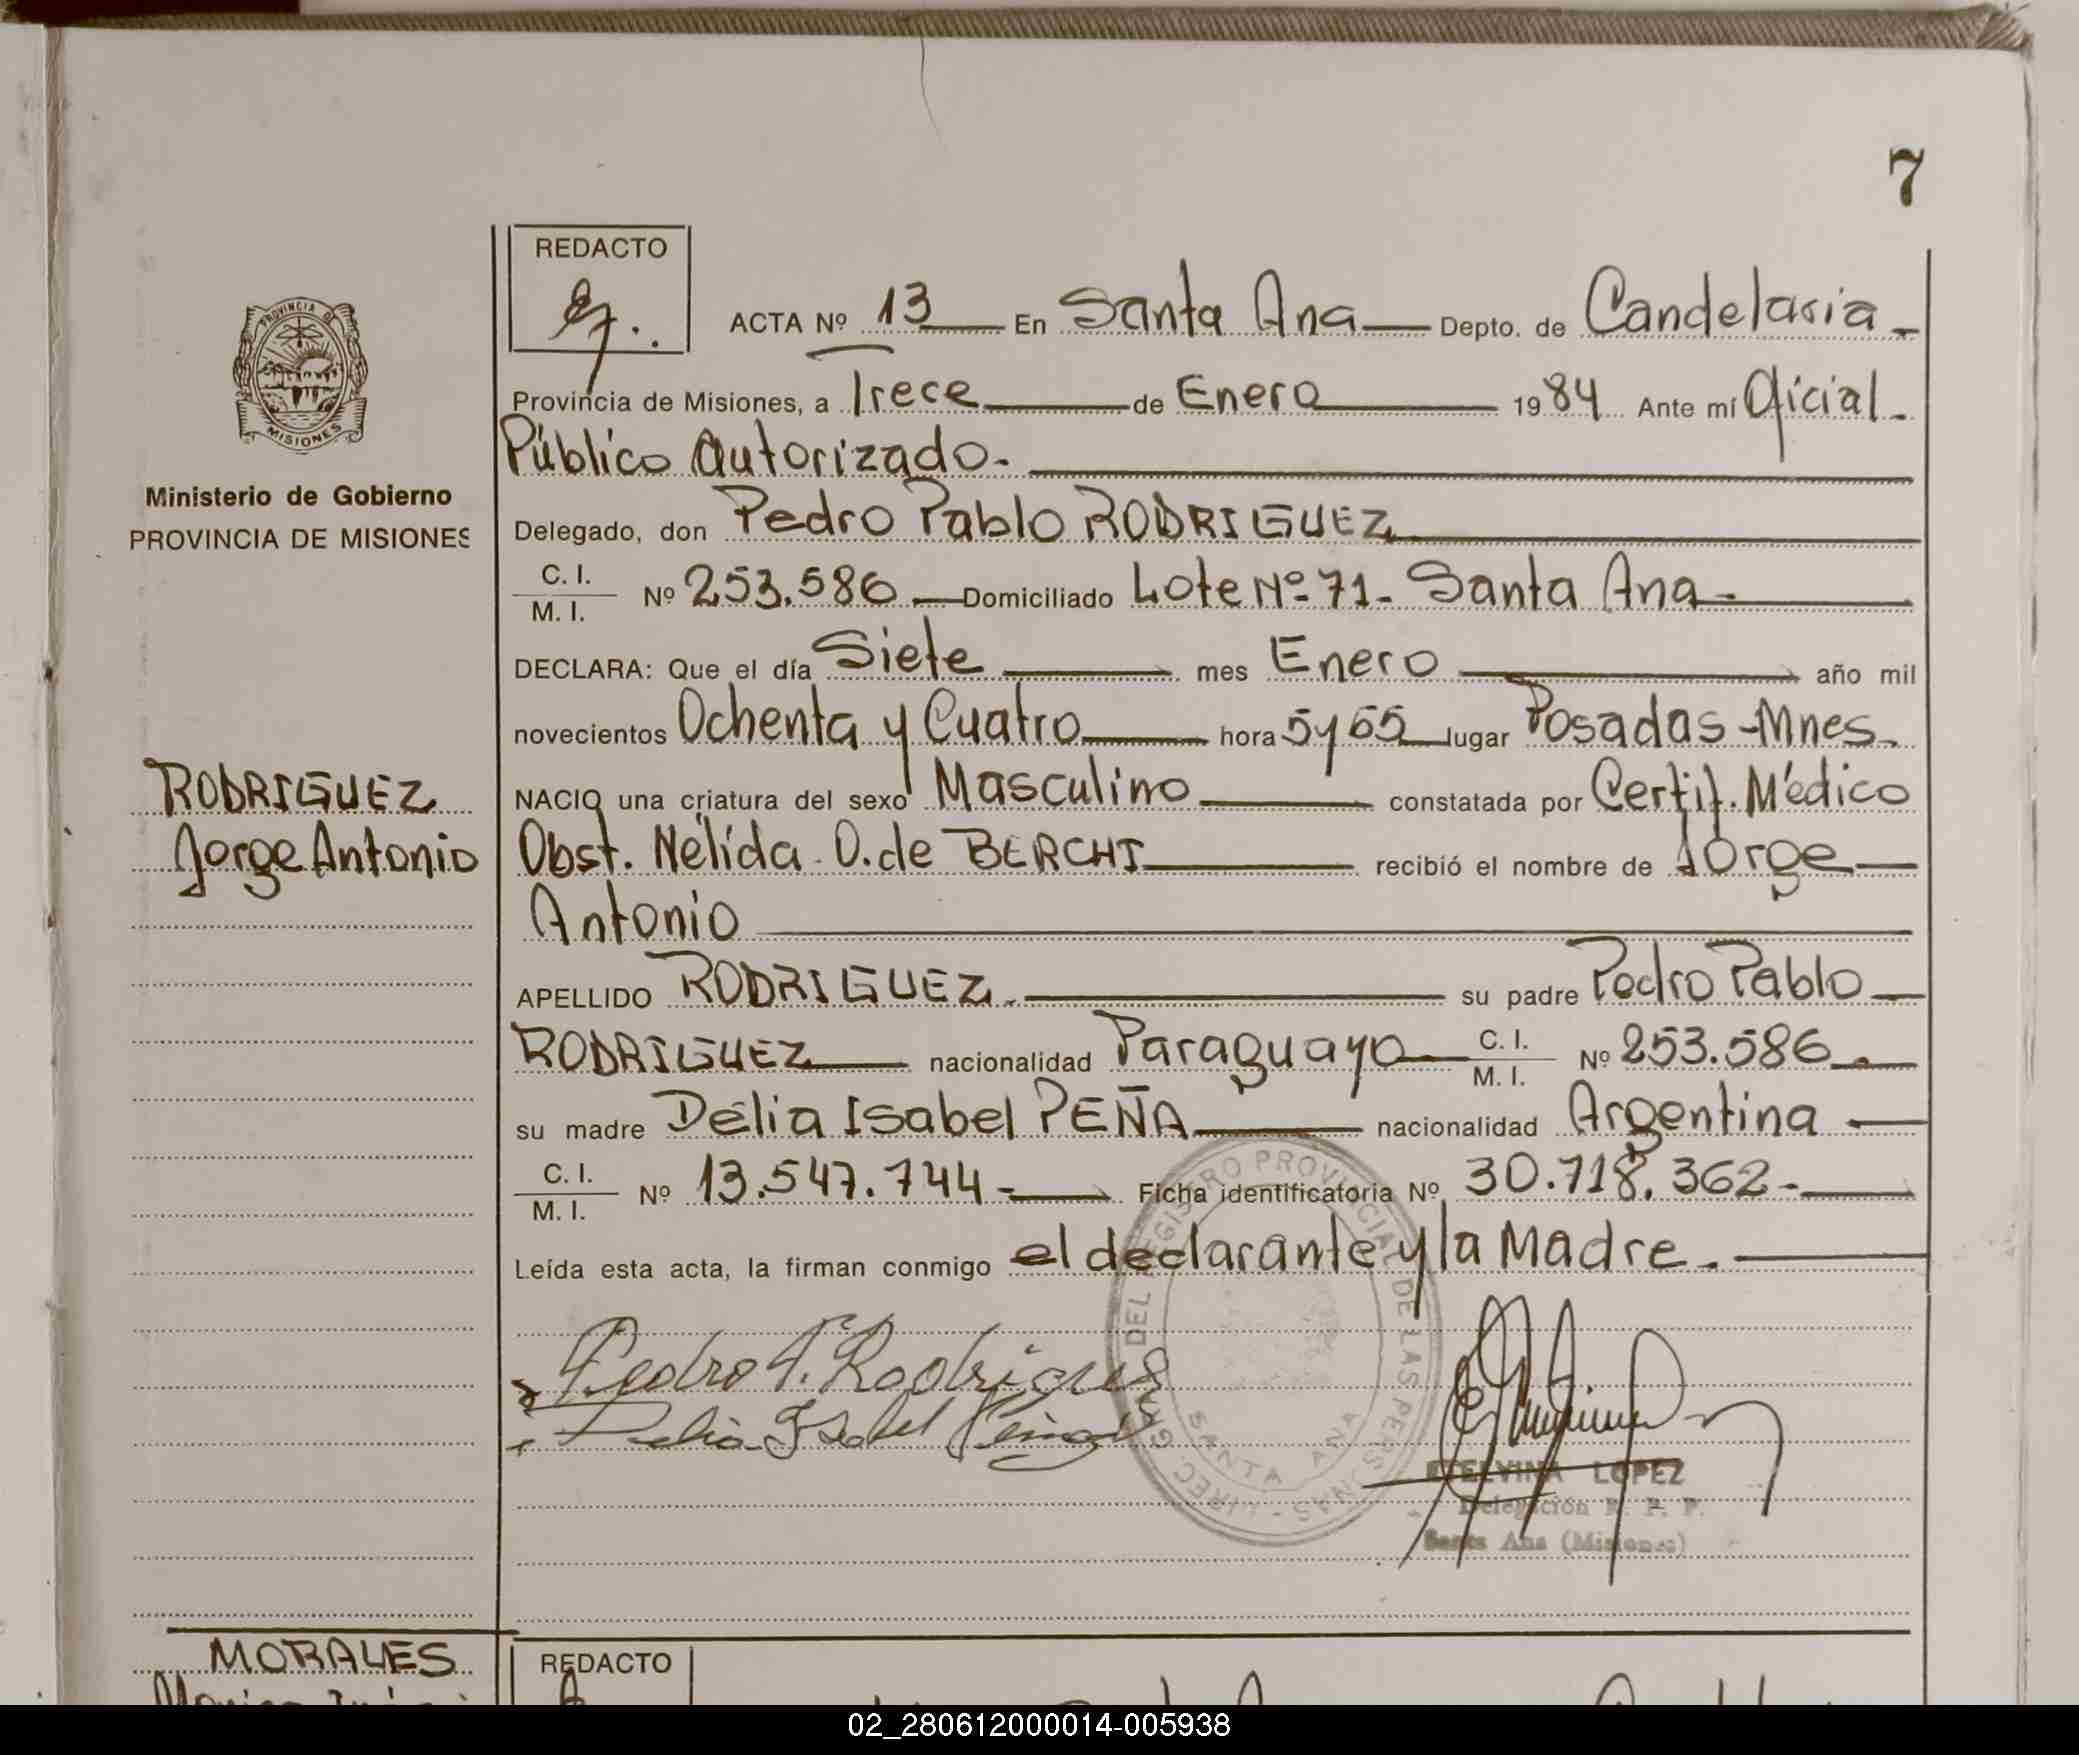 7
REDACTO
ACTA Nº 13 En Santa Ana Depto. de Candelaria
Provincia de Misiones, a Trece de Enero 1984 Ante mí Oficial
Público Autorizado.
Delegado, don Pedro Pablo RODRIGUEZ
C. I.
M. I. Nº 253.586 Domiciliado Lote Nº 71- Santa Ana-
DECLARA: Que el día Siete mes Enero año mil
novecientos Ochenta y Cuatro hora 5y55 lugar Posadas-Mnes.
NACIO una criatura del sexo Masculino constatada por Certif. Médico
Obst. Nélida O. de BERCHI recibió el nombre de Jorge
Antonio
APELLIDO RODRIGUEZ. su padre Pedro Pablo
RODRIGUEZ nacionalidad Paraguayo C. I. M. I. Nº 253.586
su madre Délia Isabel PEÑA nacionalidad Argentina
C. I.
M. I. Nº 13.547.744- Ficha identificatoria Nº 30.718.362-
Leída esta acta, la firman conmigo el declarante y la Madre.
Pedro P. Rodriguez
Delia Isabel Peña
DEL REGISTRO PROVINCIAL DE LAS PERSONAS
SANTA ANA
ETELVINA LOPEZ
Delegación R. P. P.
Santa Ana (Misiones)
PROVINCIA DE
MISIONES
Ministerio de Gobierno
PROVINCIA DE MISIONES
RODRIGUEZ
Jorge Antonio
MORALES
REDACTO
02_280612000014-005938